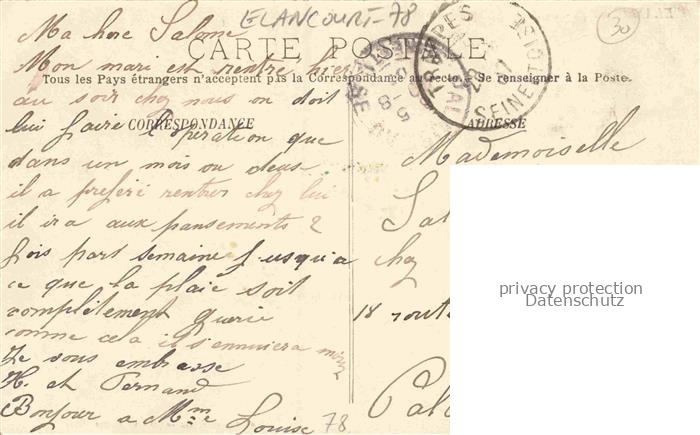 ELANCOURT-78
30
CARTE POSTALE
Tous les Pays étrangers n'acceptent pas la Correspondance au recto. - Se renseigner à la Poste.
CORRESPONDANCE
ADRESSE
TRAPPES
SEINE-ET-OISE
Ma hère Salome
Mon mari est rentre hier
au soir chez nous on doit
lui faire l'opération que
dans un mois ou deux
il a préféré rentrer chez lui
il ira aux pansements 2
fois part semaine jusqu'a
ce que la plaie soit
complètement guérie
comme cela il s'ennuiera moins
Je vous embrasse
H. et Fernand
Bonjour a Mme Louise
78
Mademoiselle
Sal
chez
18 route
Pala
privacy protection
Datenschutz